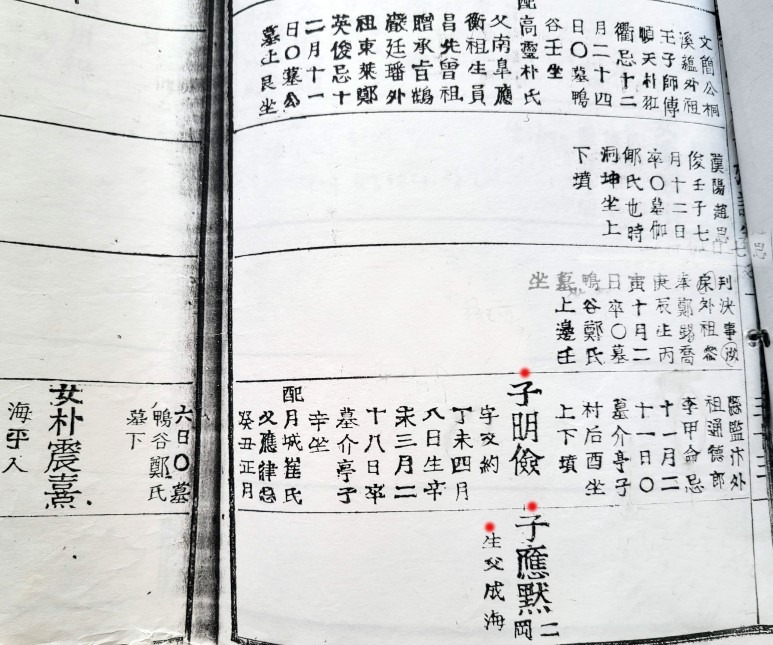 文簡公桐
溪蘊外祖
王子師傅
順天朴㴒
衢忌十二
月二十四
日〇墓鴨
谷壬坐
配高靈朴氏
父南阜應
衡祖生員
昌先曾祖
贈承旨鶴
嚴廷璠外
祖東萊鄭
英俊忌十
二月十一
日〇墓公
墓上艮坐
漢陽趙
俊壬子七
月十二日
卒〇墓伽
鄖氏也時
洞坤坐上
下墳
判決事
外祖
奉鄭錫喬
庚辰生丙
寅十月二
日卒〇墓
鴨谷鄭氏
墓上邊壬
坐
縣監汴外
祖通德郎
李甲命忌
十一月二
十一日〇
墓介亭子
村后酉坐
上下墳
子明儉
字文約
丁未四月
八日生辛
未三月二
十八日卒
墓介亭子
辛坐
配月城崔氏
父應律忌
癸丑正月
六日〇墓
鴨谷鄭氏
墓下
女朴震熹
海平人
子應默
二
岡
生父成海